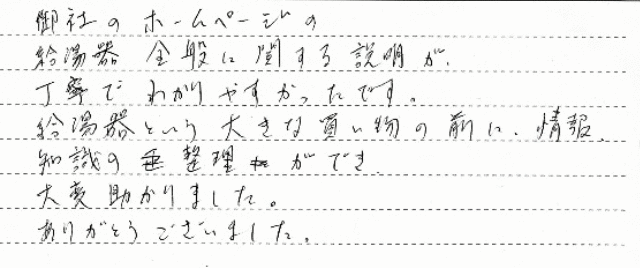 御社のホームページの
給湯器全般に関する説明が、
丁寧でわかりやすかったです。
給湯器という大きな買い物の前に、情報、
知識の整理ができ
大変助かりました。
ありがとうございました。